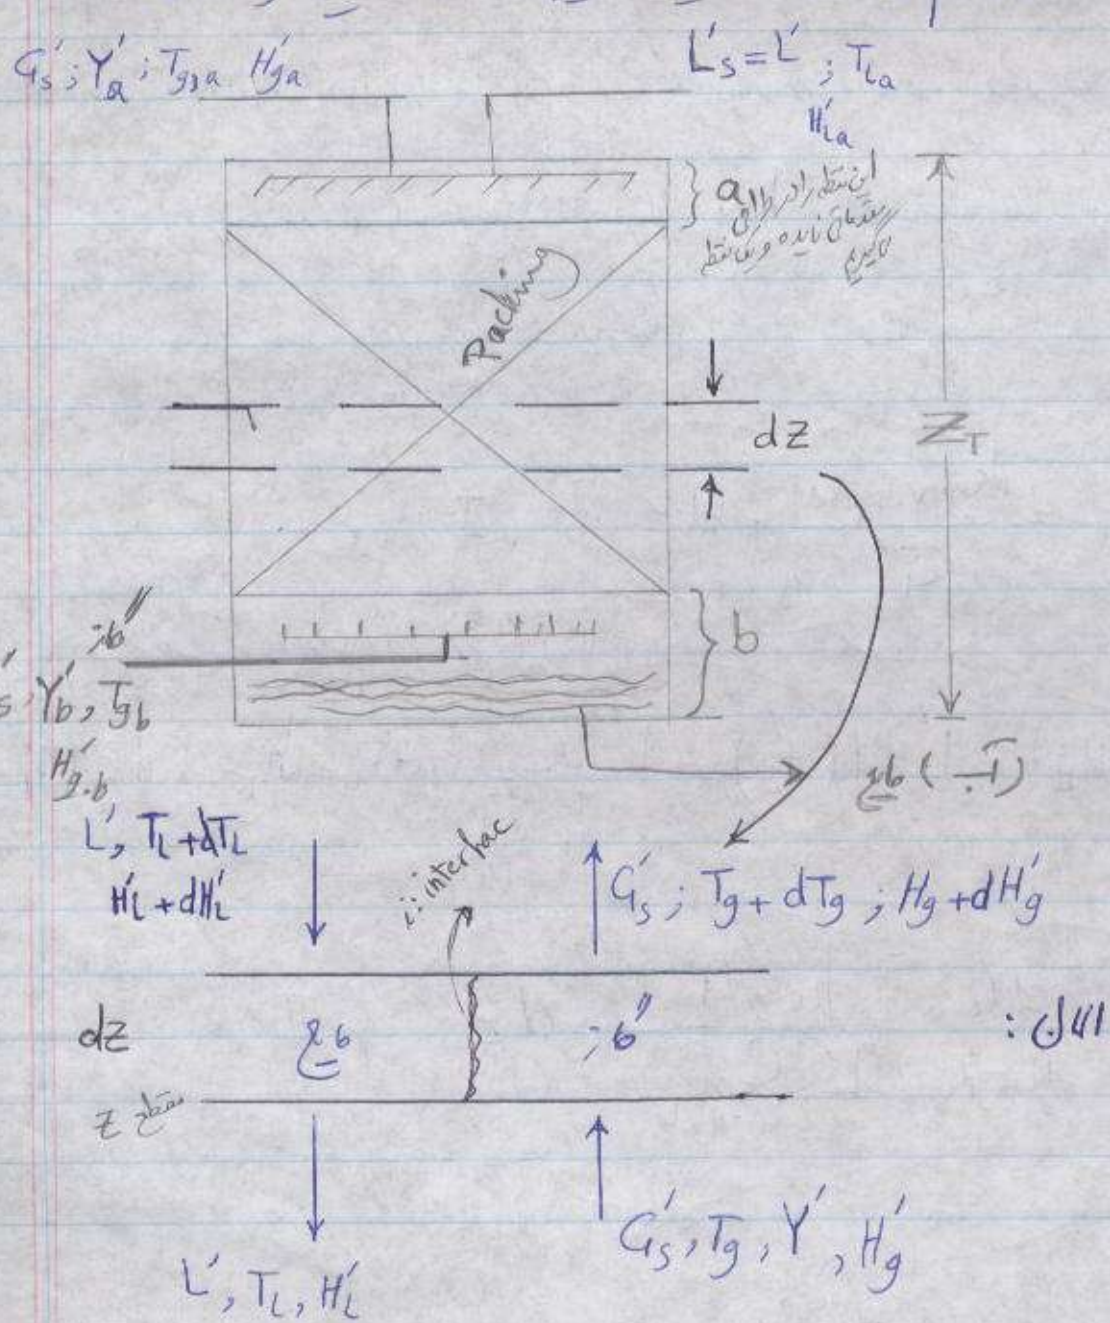 G's ; Y'a ; Tg,a H'ga
L's = L' ; TLa
H'La
a این نقطه را در
Packing
dz
ZT
گاز
Y'b, Tgb
H'g.b
b
مایع (آب)
L', TL + dTL
H'L + dH'L
i: interfac
G's ; Tg + dTg ; Hg + dH'g
dz
مایع
گاز
المان :
مقطع z
L', TL, H'L
G's, Tg, Y', H'g